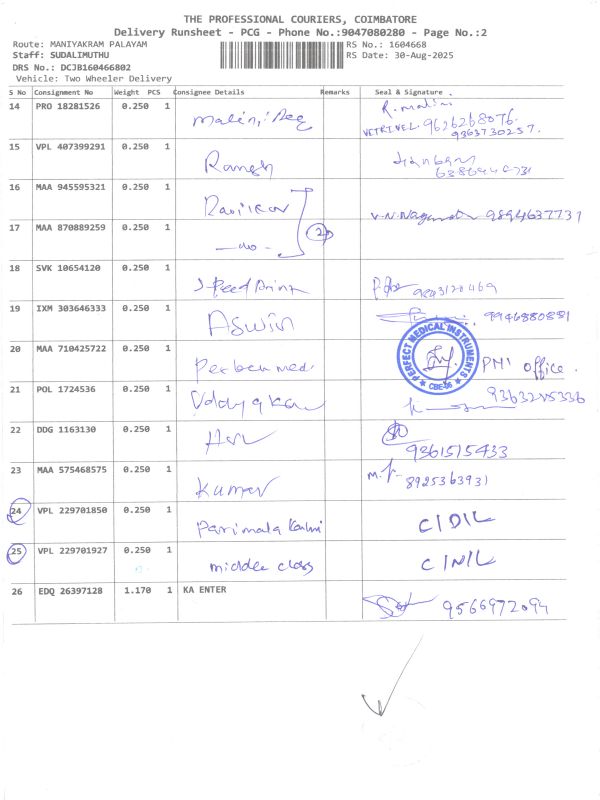 THE PROFESSIONAL COURIERS, COIMBATORE
Delivery Runsheet - PCG - Phone No.:9047080280 - Page No.:2
Route: MANIYAKRAM PALAYAM RS No.: 1604668
Staff: SUDALIMUTHU RS Date: 30-Aug-2025
DRS No.: DCJB160466802
Vehicle: Two Wheeler Delivery
S No Consignment No Weight PCS Consignee Details Remarks Seal & Signature .
14 PRO 18281526 0.250 1 R. malini
VETRIVEL. 9626268076.
9363730257.
15 VPL 407399291 0.250 1 Ramesh
16 MAA 945595321 0.250 1 9894637731
17 MAA 870889259 0.250 1 —do— 2
18 SVK 10654120 0.250 1 Speed Print 9843120469
19 IXM 303646333 0.250 1 Aswin 9946880881
20 MAA 710425722 0.250 1 PERFECT MEDICAL INSTRUMENTS CBE-06 PMI office.
21 POL 1724536 0.250 1 9363215336
22 DDG 1163130 0.250 1 9361515433
23 MAA 575468575 0.250 1 Kumar 8925363931
24 VPL 229701850 0.250 1 Parimala
25 VPL 229701927 0.250 1 middle class
26 EDQ 26397128 1.170 1 KA ENTER 9566972094